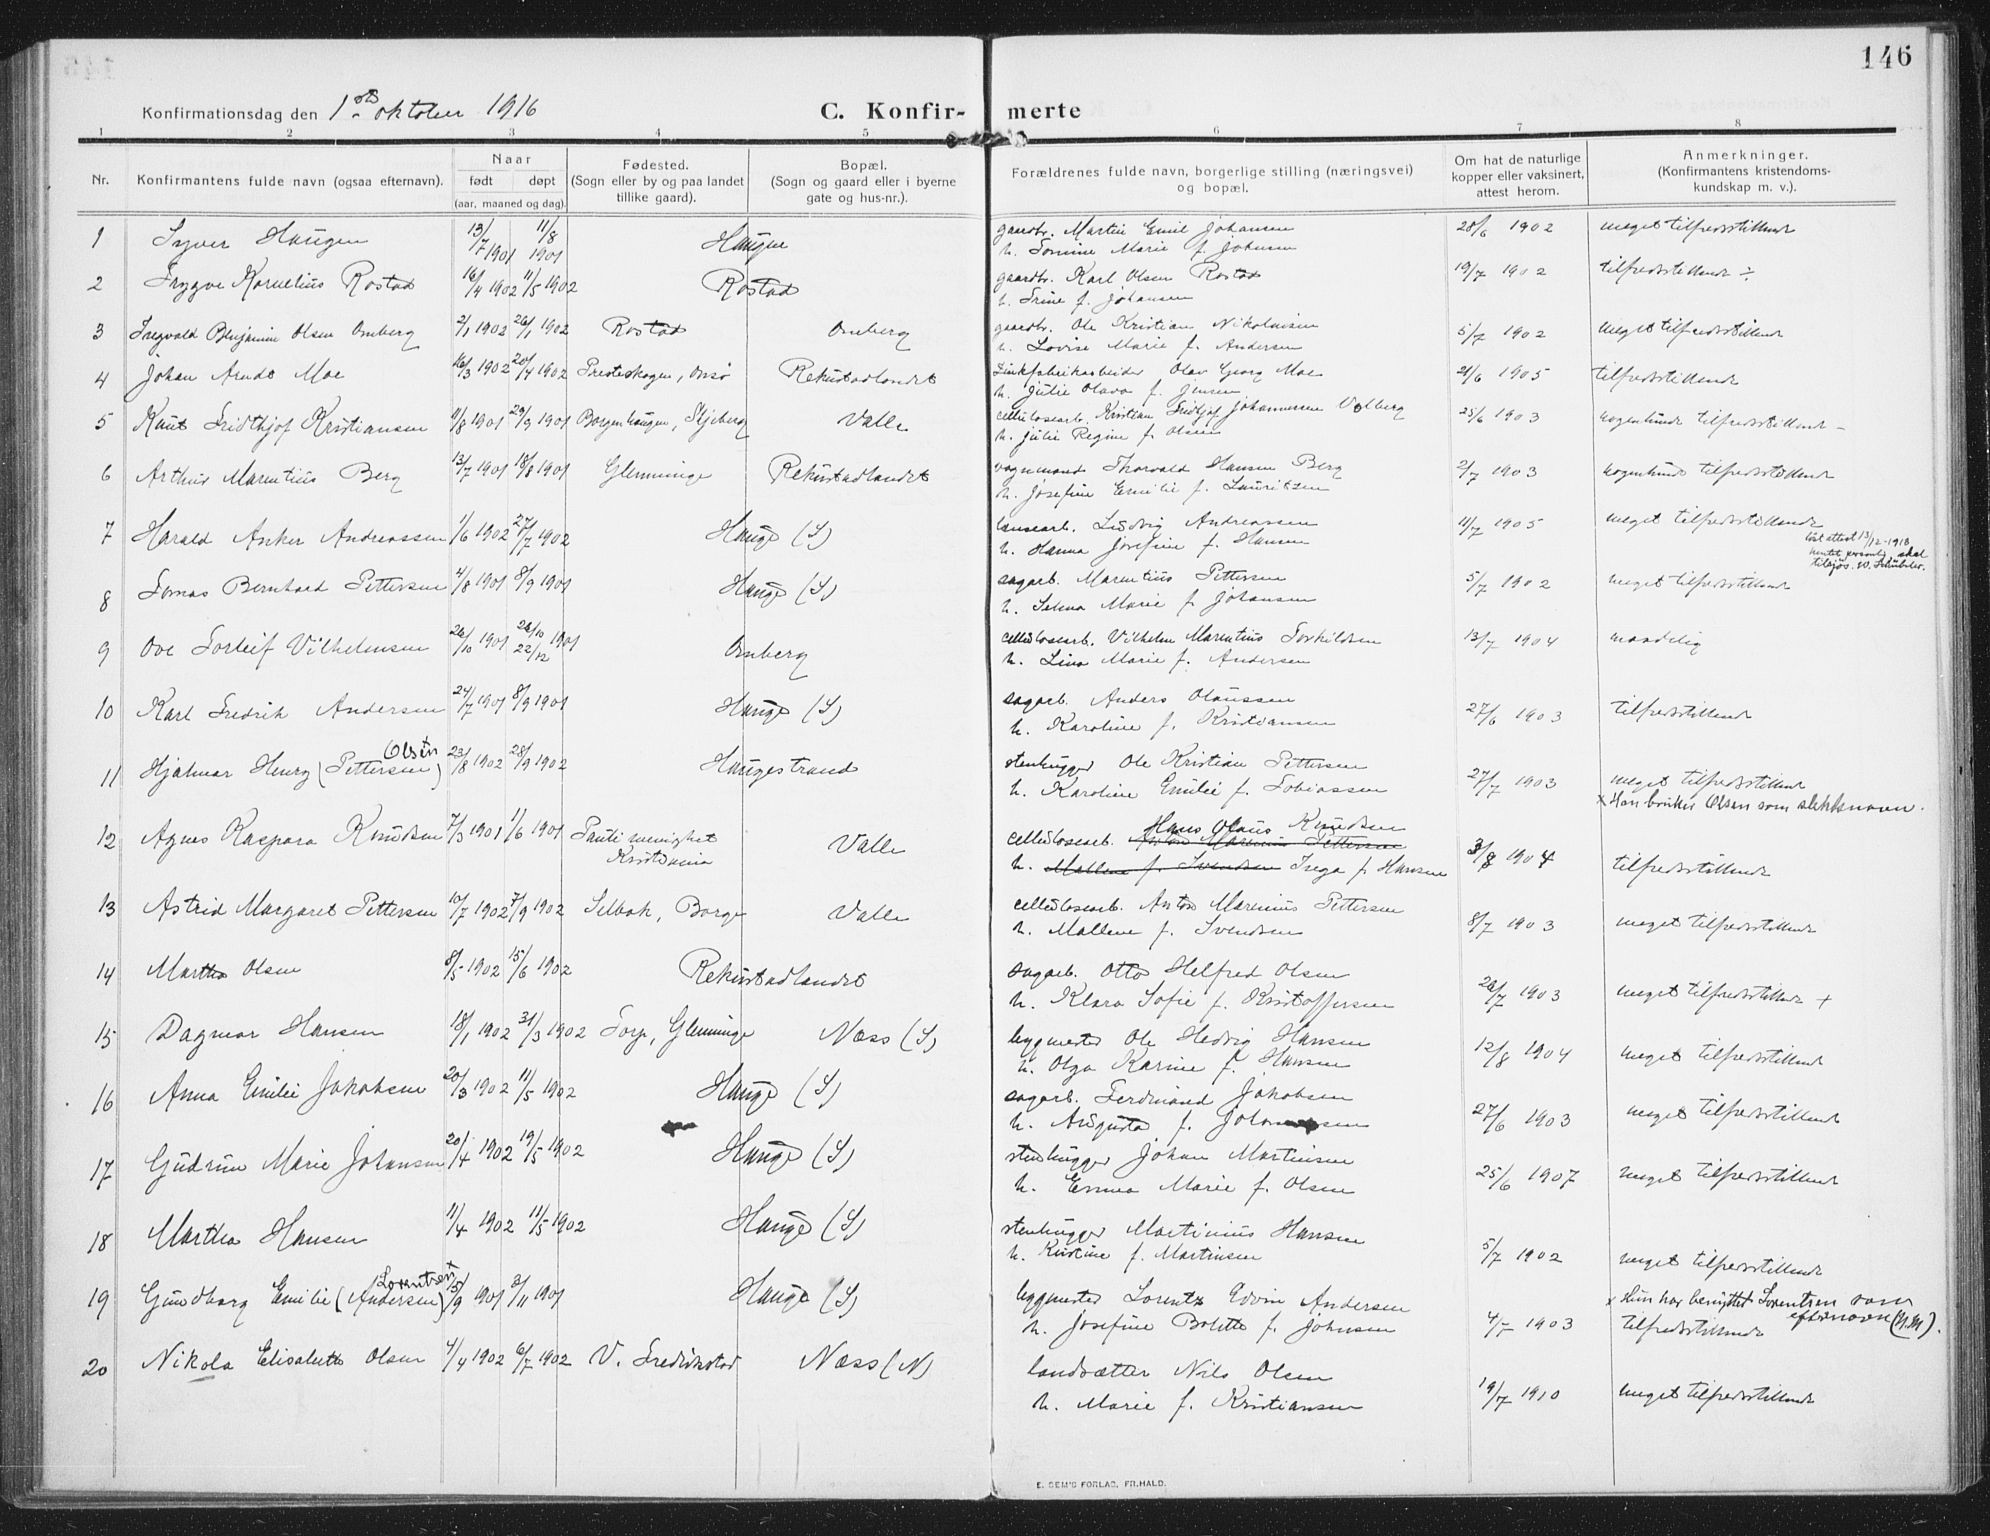 146
Konfirmationsdag den 1ste oktober 1916
C. Konfirmerte
1 2 3 4 5 6 7 8
Nr.
Konfirmantens fulde navn (ogsaa efternavn).
Naar
født døpt
(aar, maaned og dag).
Fødested.
(Sogn eller by og paa landet
tillike gaard).
Bopæl.
(Sogn og gaard eller i byerne
gate og hus-nr.).
Forældrenes fulde navn, borgerlige stilling (næringsvei)
og bopæl.
Om hat de naturlige
kopper eller vaksinert,
attest herom.
Anmerkninger.
(Konfirmantens kristendoms-
kundskap m. v.).
1 Syver Haugen 13/7 1901 11/8 1901 Haugen gaardbr. Martin Emil Johansen 28/6 1902 meget tilfredsstillende
h. Tomine Marie f. Johnsen
2 Trygve Kornelius Rostad 16/4 1902 11/5 1902 Rostad gaardbr. Karl Olsen Rostad 19/7 1902 tilfredsstillende ÷
h. Trine f. Johansen
3 Ingvald Benjamin Olsen Omberg 2/1 1902 26/1 1902 Rostad Omberg gaardbr. Ole Kristian Nikolaisen 5/7 1902 meget tilfredsstillende
h. Lovise Marie f. Andersen
4 Johan Arndt Moe 16/3 1902 20/4 1902 Presteskogen, Onsø Rekustadlandet Zinkfabrikarbeider Olav Georg Moe 21/6 1905 tilfredsstillende
h. Julie Olava f. Jensen
5 Knut Fridthjof Kristiansen 11/8 1901 29/9 1901 Borgenhaugen, Skjeberg Valle cellulosearb. Kristian Fridtjof Johannessen Volberg 25/6 1903 nogenlunde tilfredsstillende –
h. Julie Regine f. Olsen
6 Arthur Marentius Berg 13/7 1901 18/8 1901 Glemminge Rekustadlandet vognmand Thorvald Hansen Berg 2/7 1903 nogenlunde tilfredsstillende
h. Josefine Emilie f. Lauritzen
7 Harald Anker Andreassen 1/6 1902 27/7 1902 Hauge (S) lensearb. Ludvig Andreassen 11/7 1905 meget tilfredsstillende
h. Hanna Josefine f. Hansen
løst attest 13/12-1918
hentet personlig, skal
tilsjøs.
8 Tomas Bernhard Pettersen 4/8 1901 8/9 1901 Hauge (S) sagarb. Marentius Pettersen 5/7 1902 meget tilfredsstillende
h. Selma Marie f. Johansen
9 Ove Torleif Vilhelmsen 26/10 1901 26/10 22/12 1901 Omberg cellulosearb. Vilhelm Marentius Torkildsen 13/7 1904 maadelig
h. Lina Marie f. Andersen
10 Karl Fredrik Andersen 24/7 1901 8/9 1901 Hauge (S) sagarb. Anders Olaussen 27/6 1903 tilfredsstillende
h. Karoline f. Kristiansen
11 Hjalmar Henry (Pettersen) Olsen 23/8 1902 28/9 1902 Haugestrand stenhugger Ole Kristian Pettersen 27/7 1903 meget tilfredsstillende
h. Karoline Emilie f. Tobiassen
x Han bruker Olsen som slektsnavn.
12 Agnes Kaspara Knudsen 7/3 1901 1/6 1901 Pauli menighet Kristiania Valle cellulosearb. Hans Olaus Knudsen Anton Marinius Pettersen 3/8 1904 tilfredsstillende
h. Mallene f. Svendsen Inga f. Hansen
13 Astrid Margaret Pettersen 10/7 1902 7/9 1902 Selbak, Borge Valle cellulosearb. Anton Marinius Pettersen 8/7 1903 meget tilfredsstillende
h. Mallene f. Svendsen
14 Martha Olsen 8/5 1902 15/6 1902 Rekustadlandet sagarb. Otto Helfred Olsen 28/7 1903 meget tilfredsstillende +
h. Klara Sofie f. Kristoffersen
15 Dagmar Hansen 18/1 1902 31/3 1902 Torp, Glemminge Næss (S) byggmester Ole Hedvig Hansen 12/8 1904 meget tilfredsstillende
h. Olga Karine f. Hansen
16 Anna Emilie Jakobsen 20/3 1902 11/5 1902 Hauge (S) sagarb. Ferdinand Jakobsen 27/6 1903 meget tilfredsstillende
h. Augusta f. Johannessen
17 Gudrun Marie Johansen 20/4 1902 19/5 1902 Hauge (S) stenhugger Johan Martinsen 25/6 1907 meget tilfredsstillende
h. Emma Marie f. Olsen
18 Martha Hansen 11/4 1902 11/5 1902 Hauge (S) stenhugger Martinius Hansen 5/7 1902 meget tilfredsstillende
h. Kristine f. Martinsen
19 Gundborg Emilie (Andersen) Lorentsen x 15/9 1901 3/11 1901 Hauge (S) byggmester Lorentz Edvin Andersen 4/7 1903 tilfredsstillende
h. Josefine Bolette f. Johnsen
x Hun har benyttet Lorentzen som
efternavn (N.M).
20 Nikola Elisabeth Olsen 4/4 1902 6/7 1902 V. Fredrikstad Næss (N) landsætter Nils Olsen 19/7 1910 meget tilfredsstillende
h. Marie f. Kristiansen
E. SEM'S FORLAG, FR.HALD.